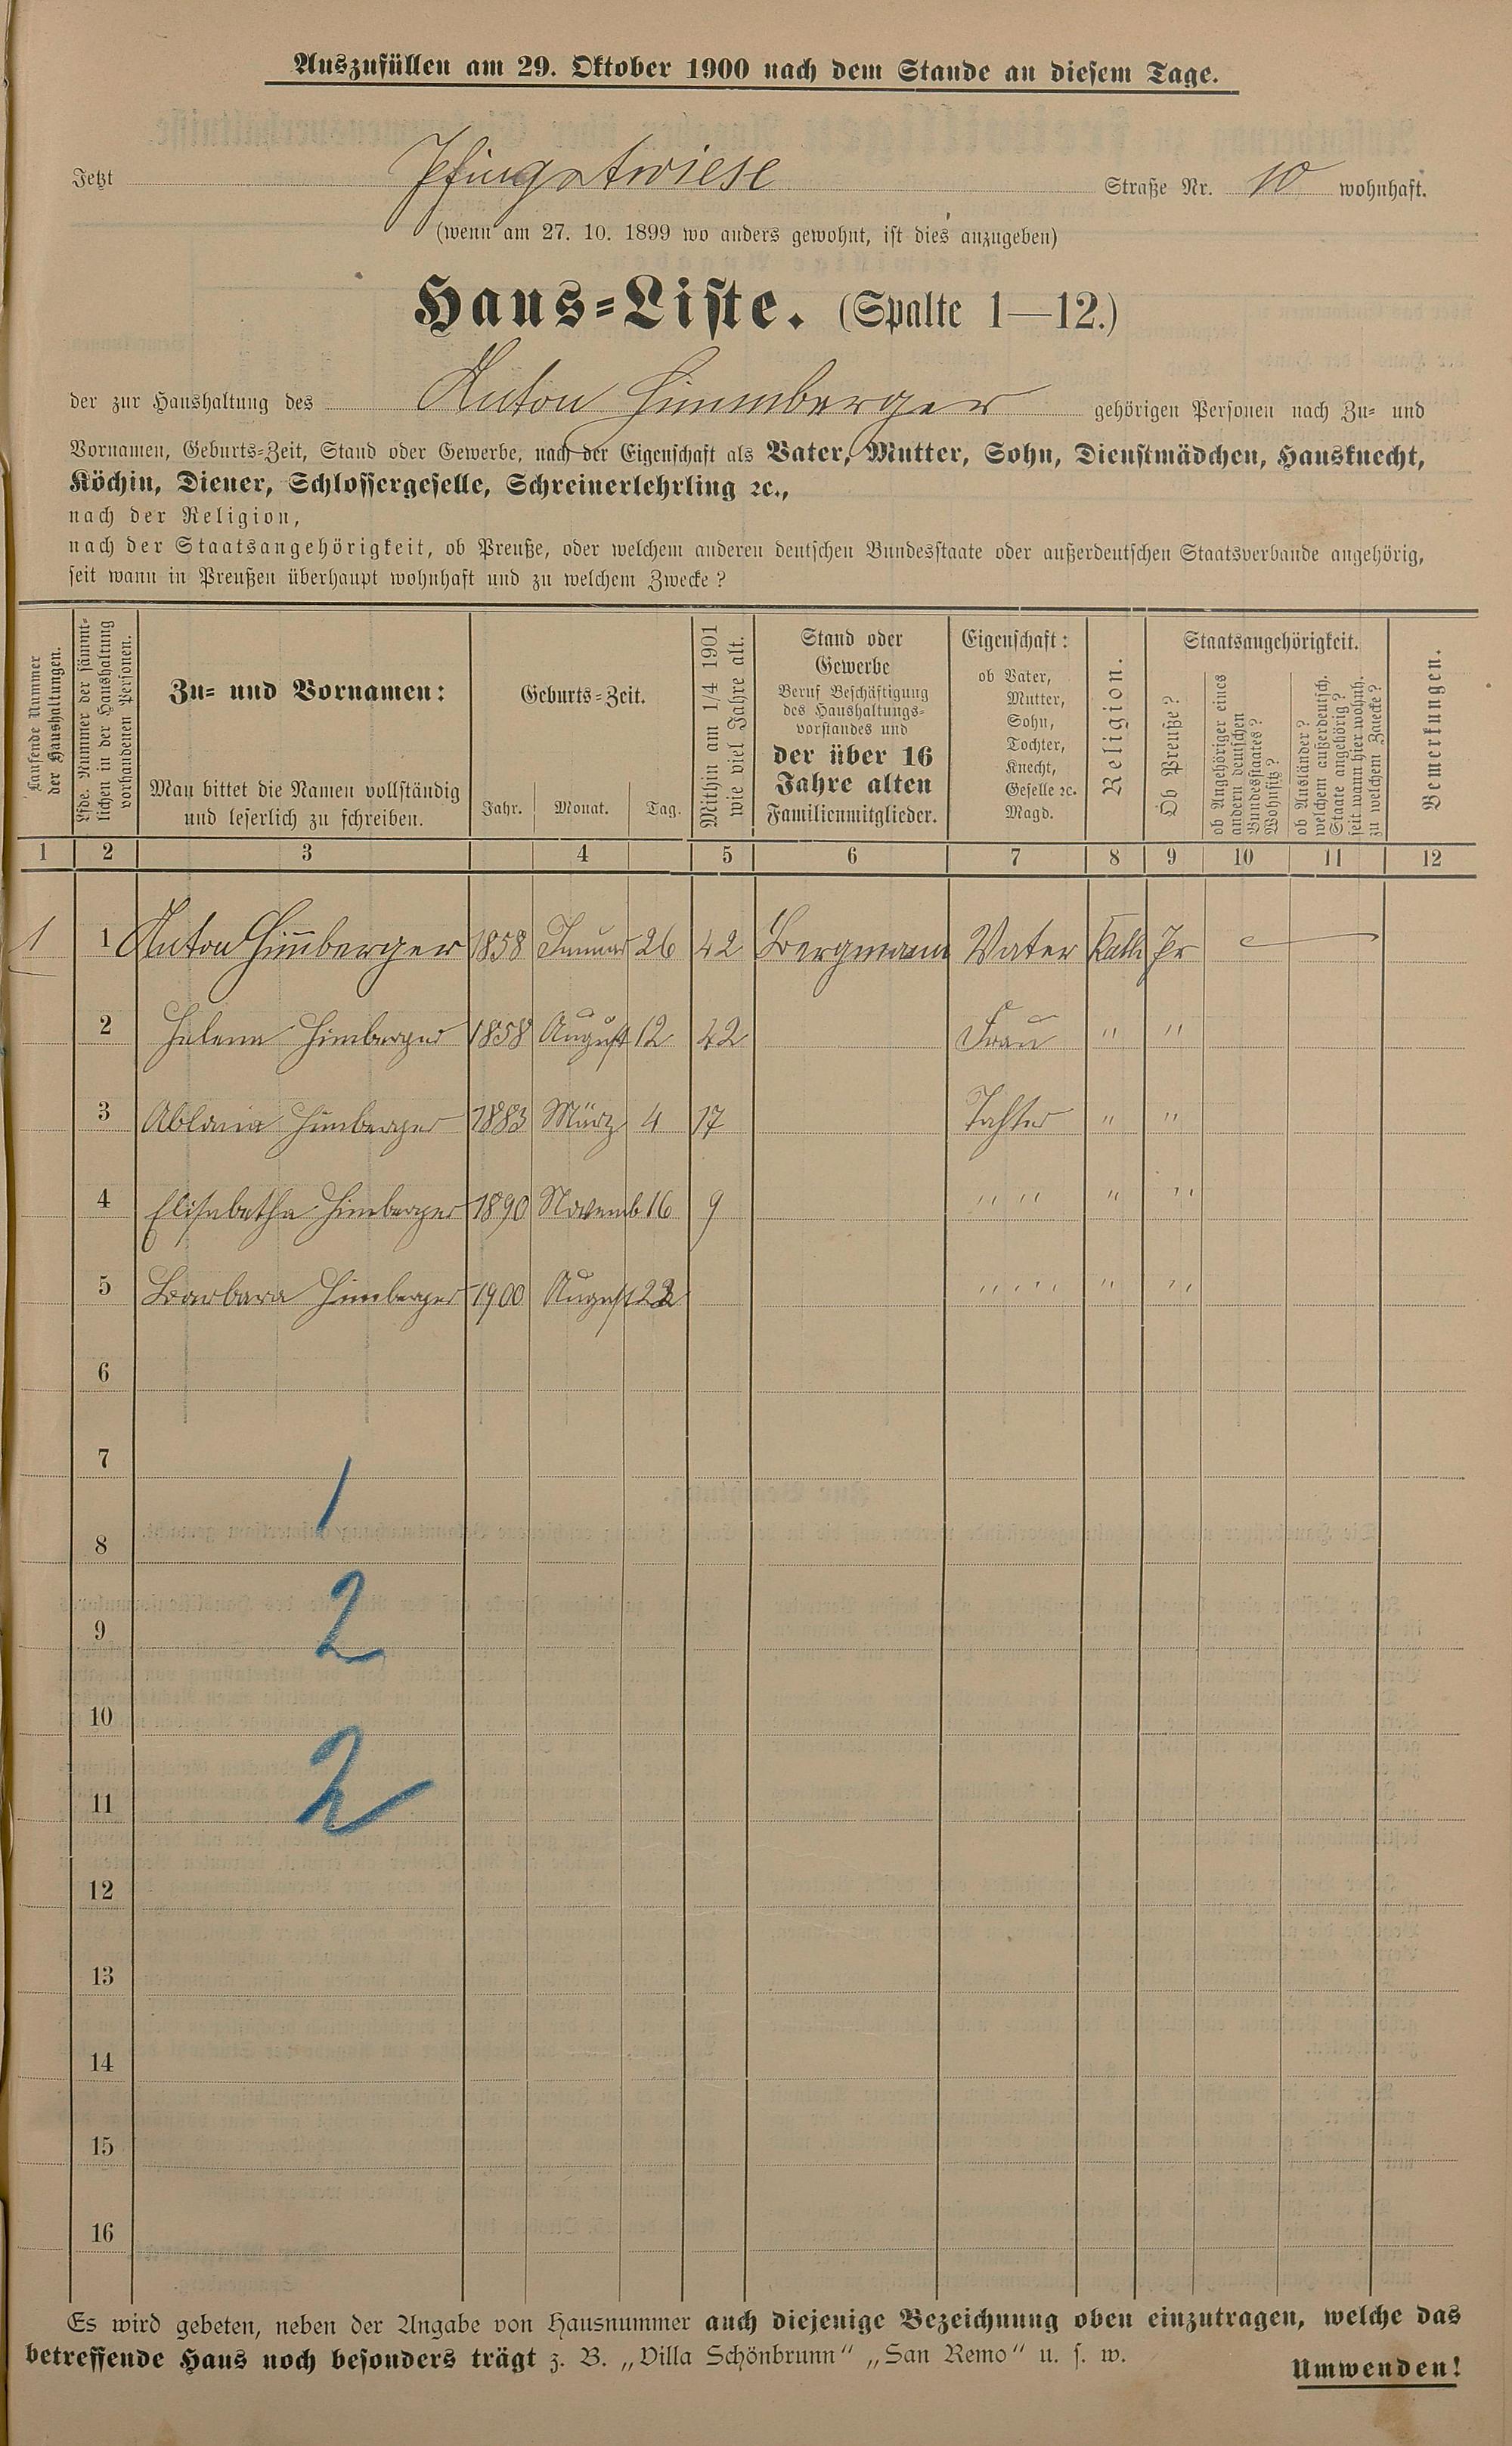 Auszufüllen am 29. Oktober 1900 nach dem Stande an diesem Tage.
Jetzt Pfingstwiese Straße Nr. 10 wohnhaft.
(wenn am 27. 10. 1899 wo anders gewohnt, ist dies anzugeben)
Haus-Liste. (Spalte 1—12.)
der zur Haushaltung des Anton Himmberger gehörigen Personen nach Zu- und
Vornamen, Geburts-Zeit, Stand oder Gewerbe, nach der Eigenschaft als Vater, Mutter, Sohn, Dienstmädchen, Hausknecht,
Köchin, Diener, Schlossergeselle, Schreinerlehrling ꝛc.,
nach der Religion,
nach der Staatsangehörigkeit, ob Preuße, oder welchem anderen deutschen Bundesstaate oder außerdeutschen Staatsverbande angehörig,
seit wann in Preußen überhaupt wohnhaft und zu welchem Zwecke?
Laufende Nummer
der Haushaltungen.
Lfde. Nummer der sämmt-
lichen in der Haushaltung
vorhandenen Personen.
Zu- und Vornamen:
Man bittet die Namen vollständig
und leserlich zu schreiben.
Geburts-Zeit.
Jahr. Monat. Tag.
Mithin am 1/4 1901
wie viel Jahre alt.
Stand oder
Gewerbe
Beruf Beschäftigung
des Haushaltungs-
vorstandes und
der über 16
Jahre alten
Familienmitglieder.
Eigenschaft:
ob Vater,
Mutter,
Sohn,
Tochter,
Knecht,
Geselle ꝛc.
Magd.
Religion.
Staatsangehörigkeit.
Ob Preuße?
ob Angehöriger eines
andern deutschen
Bundesstaates?
Wohnsitz?
ob Ausländer?
welchem außerdeutsch.
Staate angehörig?
seit wann hier wohnh.
zu welchem Zwecke?
Bemerkungen.
1 2 3 4 5 6 7 8 9 10 11 12
1 1 Anton Him̄berger 1858 Januar 26 42 Bergmann Vater Kath Pr
2 Helena Himberger 1858 August 12 42 Frau " "
3 Himberger 1883 März 4 17 Tochter " "
4 Elisabetha Himberger 1890 Novemb 16 9 " " " "
5 Barbara Himberger 1900 August 22 " " " "
6
7
1
8
9
2
10
2
11
12
13
14
15
16
Es wird gebeten, neben der Angabe von Hausnummer auch diejenige Bezeichnung oben einzutragen, welche das
betreffende Haus noch besonders trägt z. B. „Villa Schönbrunn" „San Remo" u. s. w.
Umwenden!